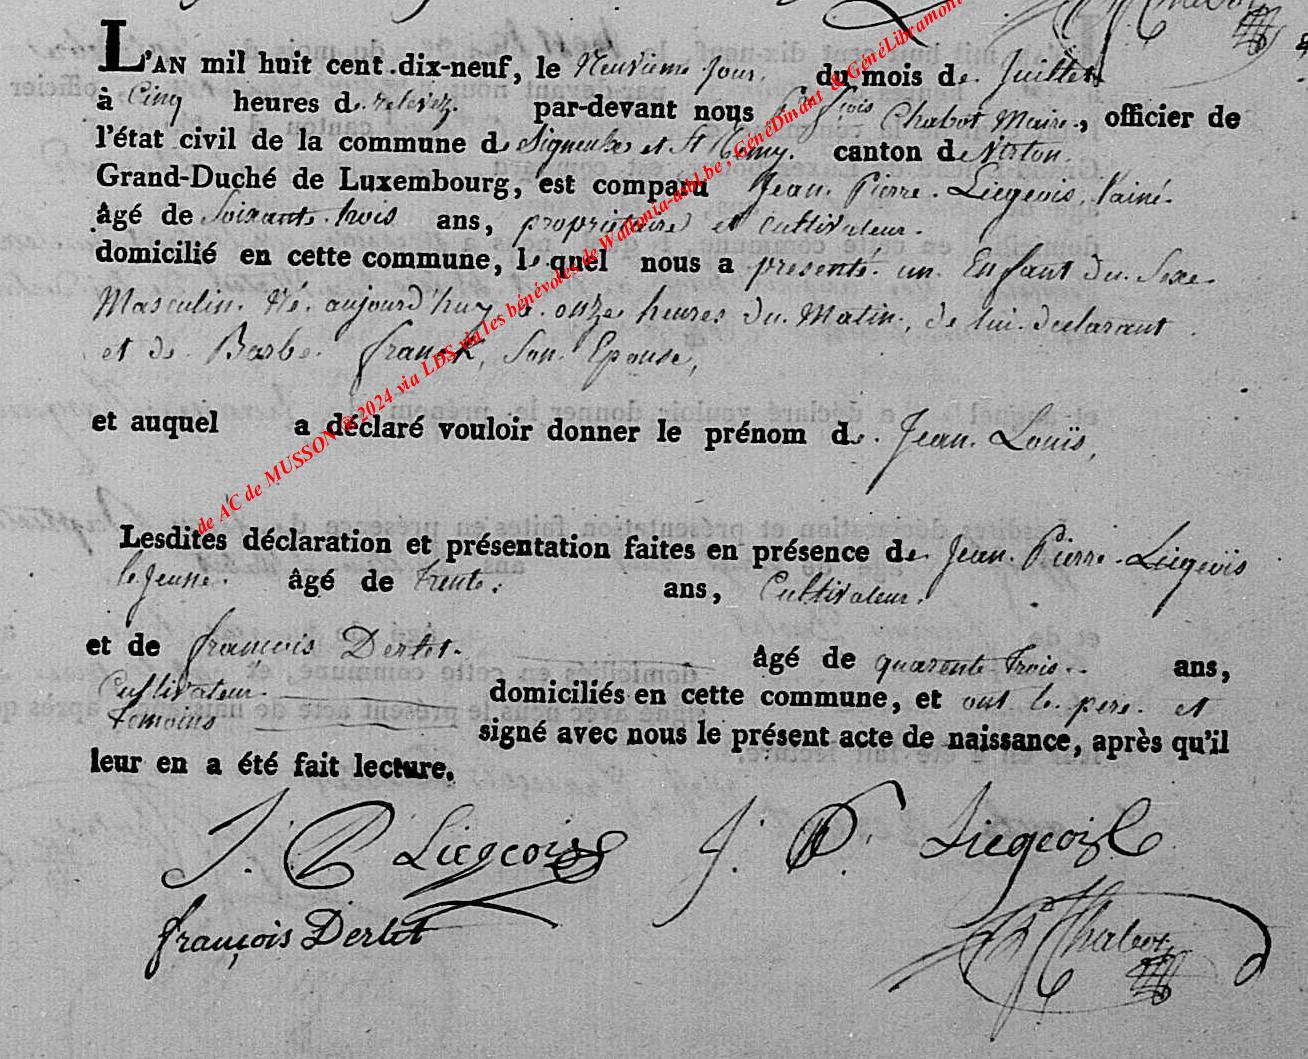 L'AN mil huit cent dix-neuf, le Neuvieme jour du mois de Juillet
à Cinq heures de relevez. par-devant nous fçois Chabot Maire, officier de
l'état civil de la commune de Signeulx et St Remy. canton de Virton.
Grand-Duché de Luxembourg, est comparu Jean Pierre Liegeois, l'ainé
âgé de Soixante trois ans, proprietaire et cultivateur.
domicilié en cette commune, lequel nous a presenté un Enfant du Sexe
Masculin. Né aujourd'huy a onze heures du Matin. de lui declarant
et de Barbe franck, Son Epouse,
et auquel a déclaré vouloir donner le prénom de Jean Louïs,
Lesdites déclaration et présentation faites en présence de Jean Pierre Liegeois
le Jeune. âgé de trente ans, Cultivateur,
et de françois Dertet. âgé de quarente trois ans,
Cultivateur. domiciliés en cette commune, et ont le pere et
temoins signé avec nous le présent acte de naissance, après qu'il
leur en a été fait lecture.
J. P Liegeois J. P. Liegeois
françois Dertet
Chabot
de AC de MUSSON @ 2024 via LDS via les bénévoles de Wallonia-asbl.be, GénéDinant & GénéLibramont